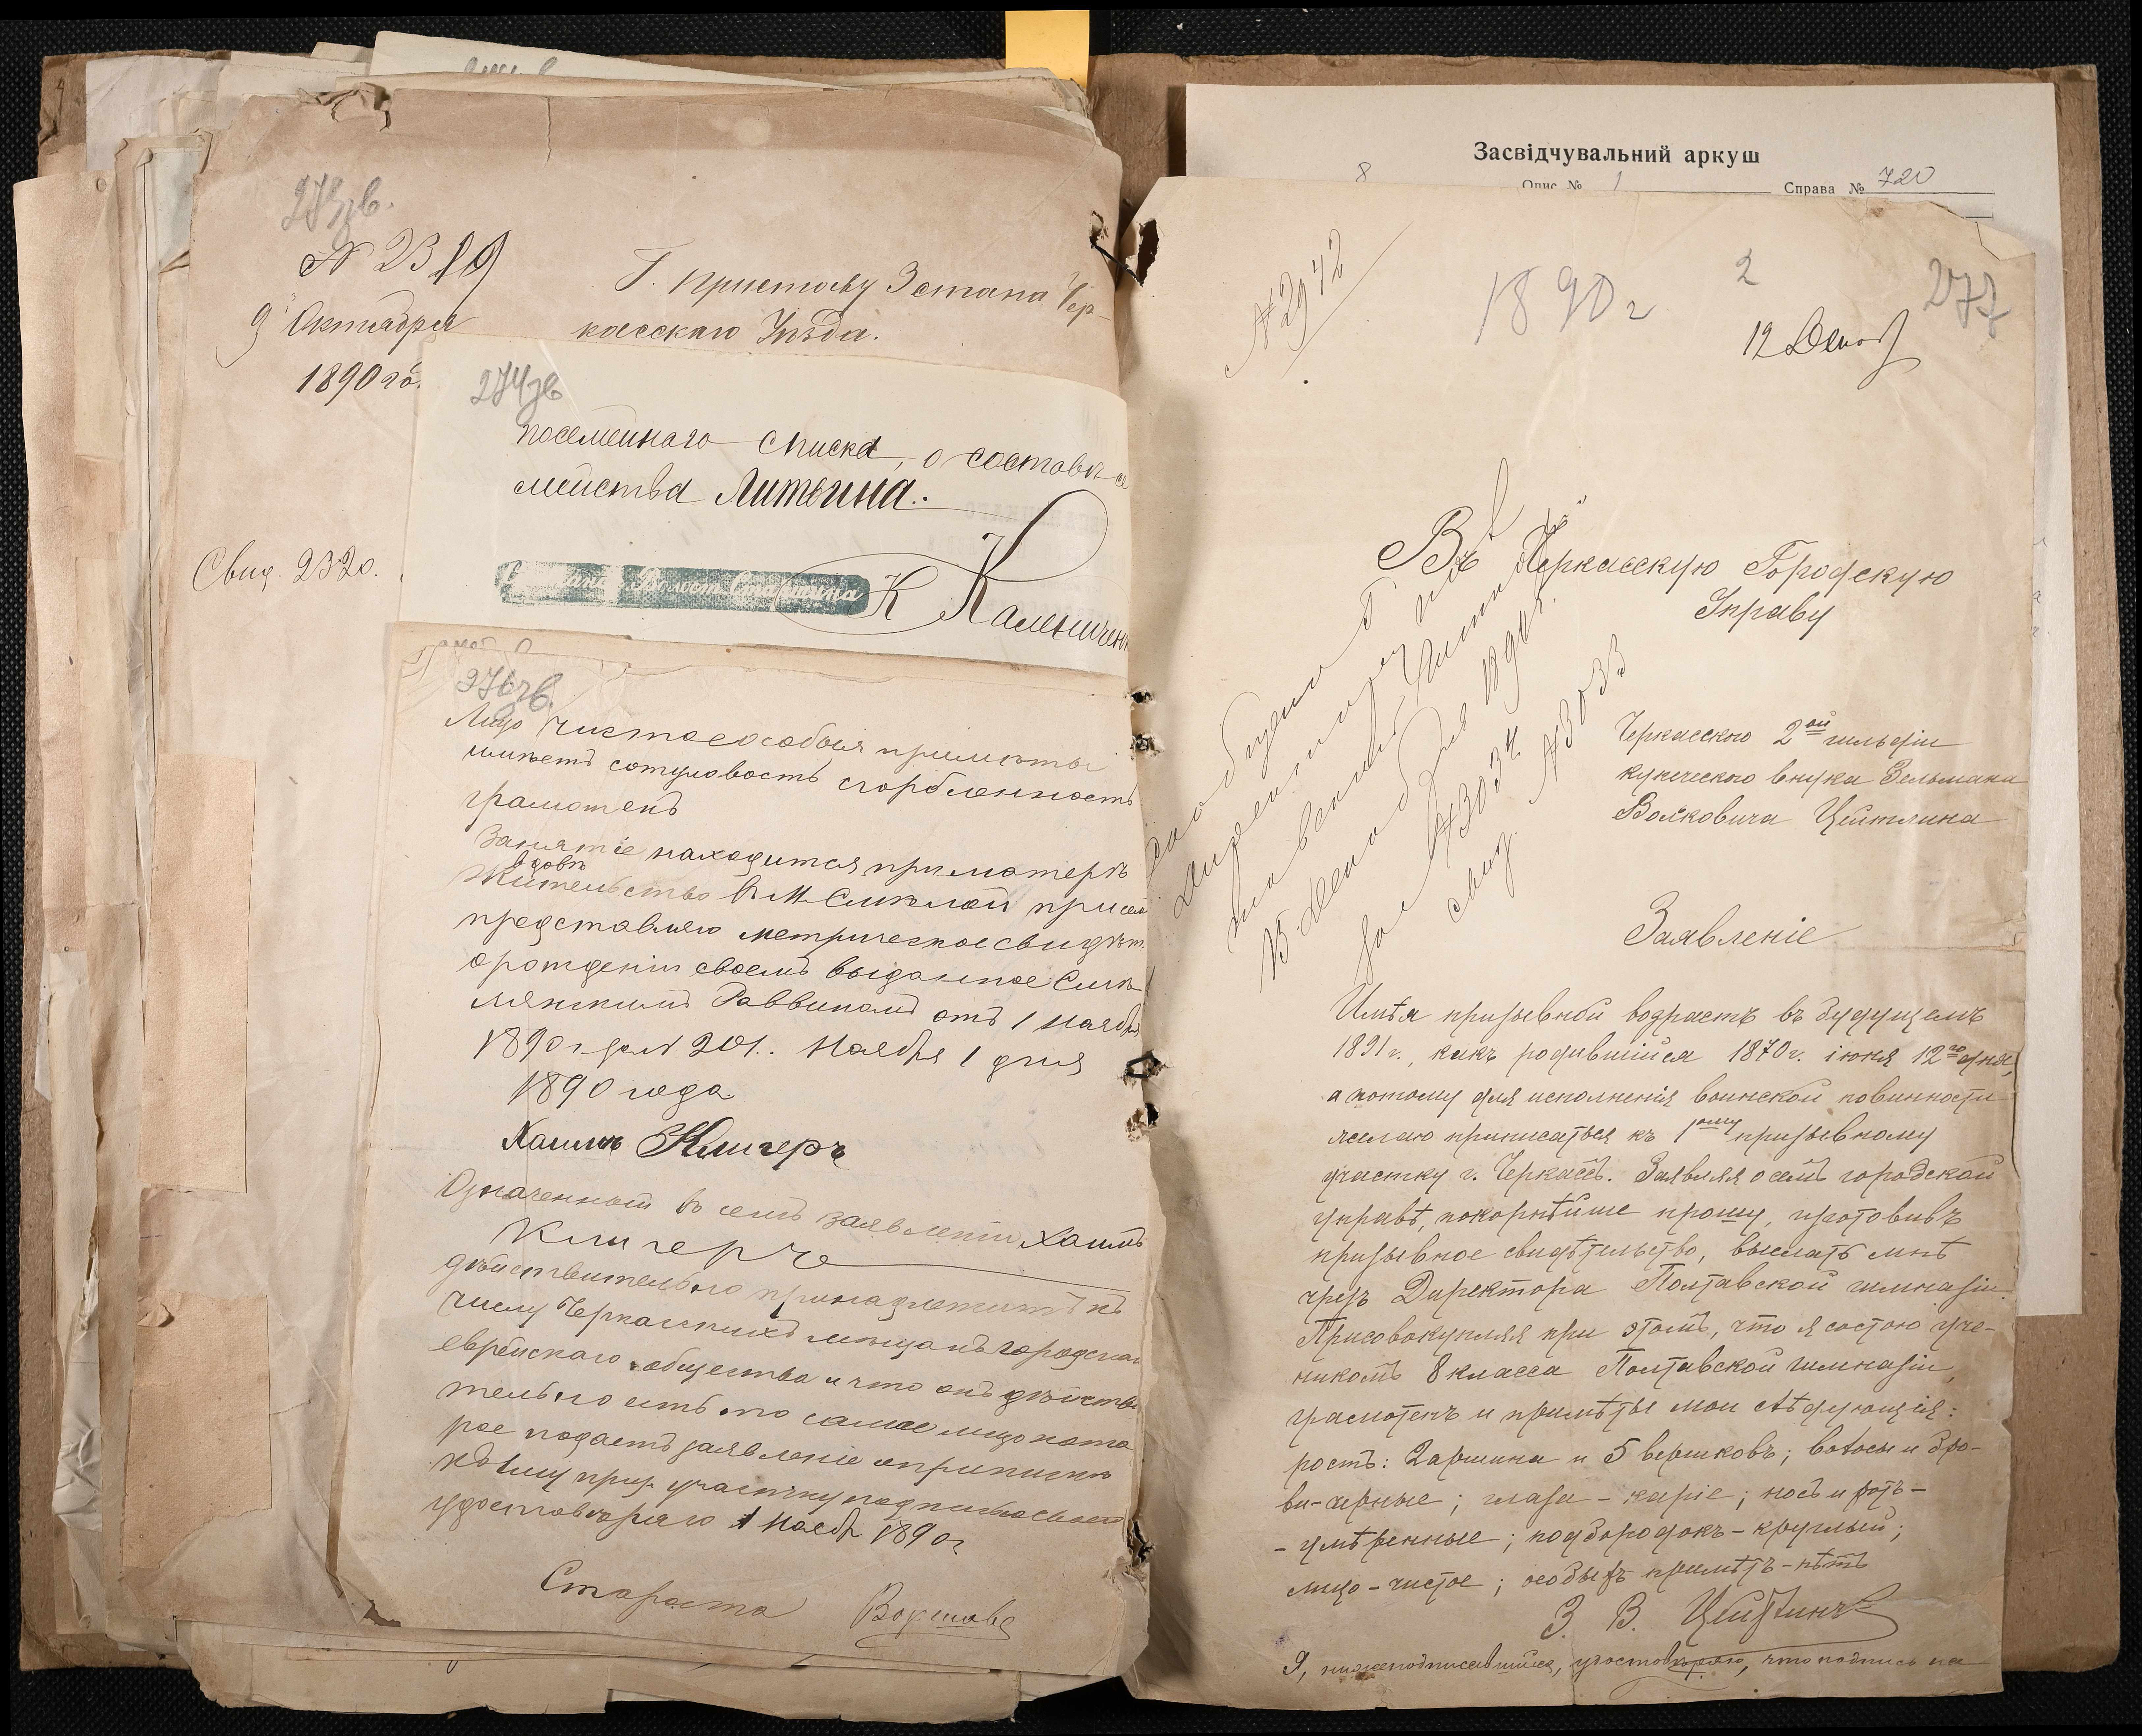 273зв.
№ 2319
9 Октября
1890 го.
Г. Приставу 3 стана Чер-
касскаго Уѣзда.
Свид. 2320.
274зв
посемейнаго списка, о составѣ се
мейства Литвина.
Волост. Старшина
К Каленичен
276зв.
Лицо чистое особыя примѣты
имѣетъ сотуловость сгорбленность
грамотенъ
Занятіе находится при матерѣ
вдовѣ
Жительство в М. Смѣлой при сем
представляю метрическое свидѣт.
о рожденіи своемъ выданное Смѣ-
лянскимъ Раввиномъ отъ 1 Ноября
1890 г. за № 201. Ноября 1 дня
1890 года
Хаимъ Клигеръ
Означенный въ семъ заявленіи Хаимъ
Клигеръ
дѣйствительно принадлежитъ къ
числу Черкасскихъ мѣщанъ городскаго
еврейскаго общества и что онъ дѣйстви
тельно есть то самое лицо кото
рое подаетъ заявленіе о припискѣ
къ 1му приз. участку подписью своею
удостовѣряю 1 Ноябр. 1890 г.
Староста
Засвідчувальний аркуш
8 Опис № 1 Справа № 720
№ 2942
1890 г
2
277
12 Декаб
Въ Черкасскую Городскую
Управу
Сообщено Г.
Директору По
тавской Гимназіи
15 Декабря 1890 г.
за № 3034
свид. № 3033
Черкасского 2ой гильдіи
купеческаго внука Зельмана
Волковича Цейтлина
Заявленіе
Имѣя призывной водрастъ въ будущемъ
1891 г., какъ родившійся 1870 г. іюня 12го дня,
а потому для исполненія воинской повинности
желаю приписаться къ 1ому призывному
участку г. Черкассъ. Заявляя о семъ городской
управѣ, покорнѣйше прошу, изготовивъ
призывное свидѣтельство, выслать мнѣ
чрезъ Директора Полтавской гимназіи.
Присовокупляя при этомъ, что я состою уче-
никомъ 8 класса Полтавской гимназіи,
грамотенъ и примѣты мои слѣдующія:
ростъ: 2 аршина и 5 вершковъ; волосы и бро-
ви-черные; глаза - каріе; носъ и ротъ -
- умѣренные; подбородокъ - круглый;
лицо - чистое; особыхъ примѣтъ - нѣтъ
З. В. Цейтлинъ
Я, нижеподписавшійся, удостовѣряю, что подпись на